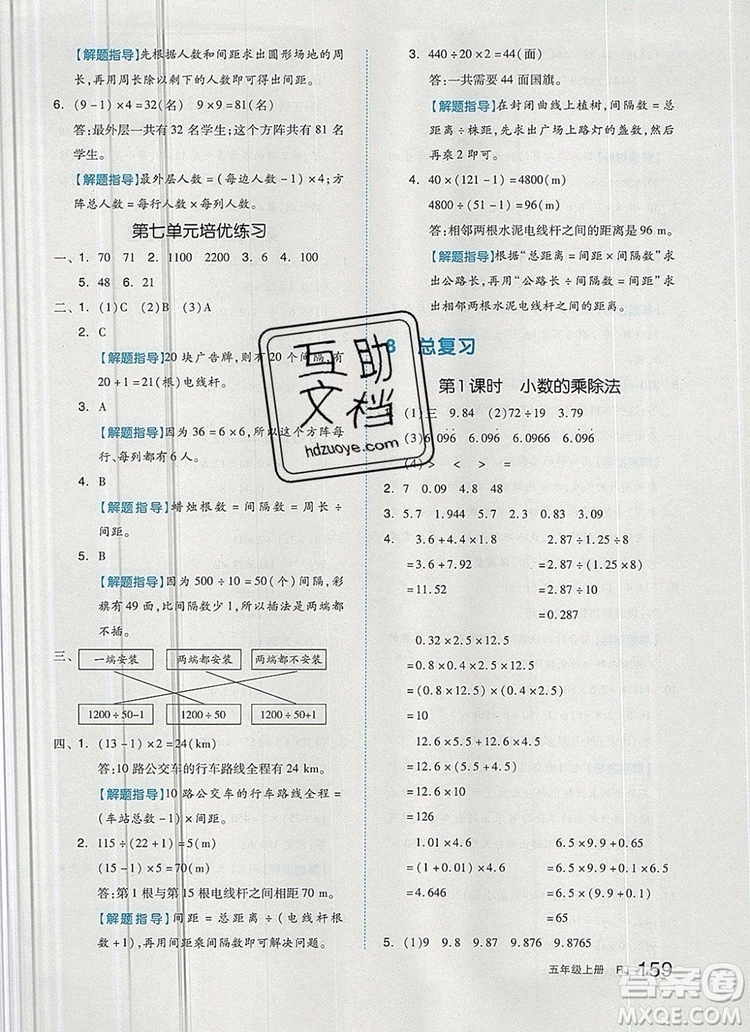 【解题指导】先根据人数和间距求出圆形场地的周
长,再用周长除以剩下的人数即可得出间距。
6. (9-1)×4=32(名) 9×9=81(名)
答:最外层一共有 32 名学生,这个方阵共有 81 名
学生。
【解题指导】最外层人数=(每边人数-1)×4;方
阵总人数=每行人数×每列人数。
第七单元培优练习
一、1. 70 71 2. 1100 2200 3. 6 4. 100
5. 48 6. 21
二、1. (1)C (2)B (3)A
2. C
【解题指导】20 块广告牌,则有 20 个间隔,有
20+1=21(根)电线杆。
3. A
【解题指导】因为 36=6×6,所以这个方阵每
行、每列都有 6 人。
4. B
【解题指导】蜡烛根数=间隔数=周长÷
间距。
5. B
【解题指导】因为 500÷10=50(个)间隔,彩
旗有 49 面,比间隔数少 1,所以插法是两端都
不插。
三、一端安装 两端都安装 两端都不安装
1200÷50-1 1200÷50 1200÷50+1
四、1. (13-1)×2=24(km)
答:10 路公交车的行车路线全程有 24 km。
【解题指导】10 路公交车的行车路线全程=
(车站总数-1)×间距。
2. 115÷(22+1)=5(m)
(15-1)×5=70(m)
答:第 1 根与第 15 根电线杆之间相距 70 m。
【解题指导】间距=总距离÷(电线杆根
数+1),再用间距乘间隔数即可解决问题。
3. 440÷20×2=44(面)
答:一共需要 44 面国旗。
【解题指导】在封闭曲线上植树,间隔数=总
距离÷株距。先求出广场上路灯的盏数,然后
再乘 2 即可。
4. 40×(121-1)=4800(m)
4800÷(51-1)=96(m)
答:相邻两根水泥电线杆之间的距离是 96 m。
【解题指导】根据“总距离=间距×间隔数”求
出公路长,再用“公路长÷间隔数”,即可求
出相邻两根水泥电线杆之间的距离。
8 总复习
第 1 课时 小数的乘除法
(1)三 9.84 (2)72÷19 3.79
(3)6.096 6.096 6.0966 6.096
(4)> < > =
2. 7 0.09 4.8 48
3. 5.7 1.944 2.7 9.43 0.83 3.09
4. 3.6×3.2 2.87÷1.25÷8
=3.6+7.92 =2.87÷(1.25×8)
=11.52 =2.87÷10
=0.287
0.32×2.5×12.5
=0.8×0.4×2.5×12.5
=(0.8×12.5)×(0.4×2.5)
=10
12.6×3.5+12.6×6.5
=12.6×(3.5+6.5)
=126
1.01×4.6 6.5×9.9+0.65
=(1+0.01)×4.6 =6.5×9.9+6.5×0.1
=4.646 =6.5×(9.9+0.1)
=65
5. (1)9 9 98 9 987 9 9876 9
五年级上册 RJ 159
互助
文档
hdzuoye.com
答案圈
MXQE.COM